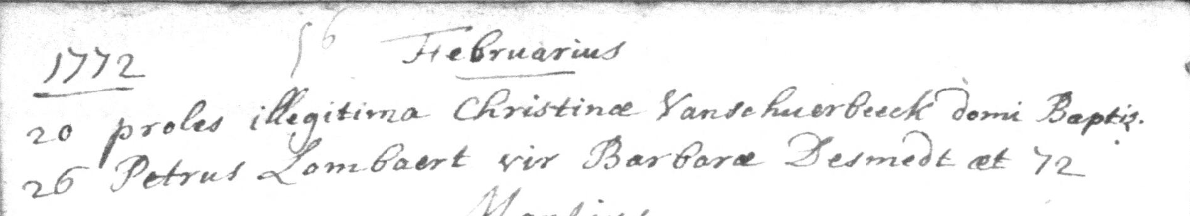 1772 56 Februarius
20 proles illegitima Christinæ Vanschuerbeeck domi Baptiz.
26 Petrus Lombaert vir Barbaræ Desmedt æt 72
Martius